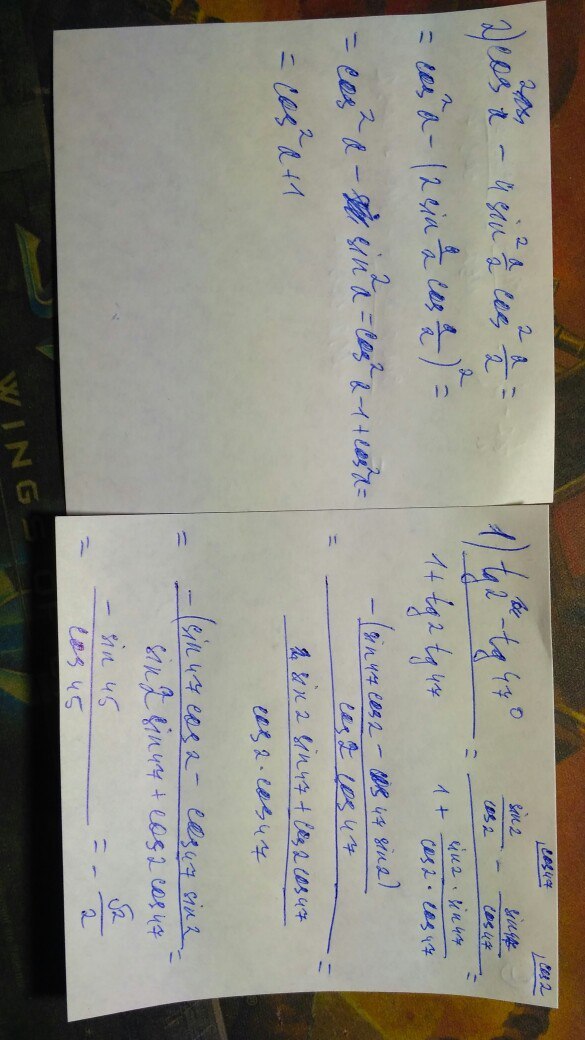 2) cos² α - 4 sin² α/2 cos² α/2 =
= cos² α - (2 sin α/2 cos α/2)² =
= cos² α - sin² α = cos² α - 1 + cos² α =
= cos² α + 1
1) (tg 2° - tg 47°) / (1 + tg 2 tg 47) = (sin 2 / cos 2 - sin 47 / cos 47) / (1 + (sin 2 · sin 47) / (cos 2 · cos 47)) =
cos 47
cos 2
= (-(sin 47 cos 2 - cos 47 sin 2) / (cos 2 cos 47)) / ((sin 2 sin 47 + cos 2 cos 47) / (cos 2 · cos 47)) =
= -(sin 47 cos 2 - cos 47 sin 2) / (sin 2 sin 47 + cos 2 cos 47) =
= - sin 45 / cos 45 = - √2 / 2
WINGE